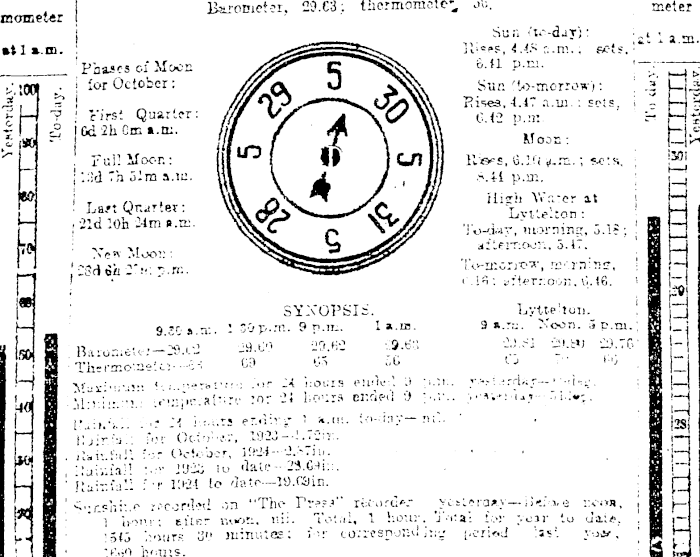 mometer
at 1 a.m.
Yesterday.
To-day.
100
90
80
70
50
40
Barometer, 29.63; thermometer, 56.
Phases of Moon
for October:
First Quarter:
6d 2h 0m a.m.
Full Moon:
7h 51m a.m.
Last Quarter:
21d 10h 24m a.m.
New Moon:
28d 6h p.m.
5
30
5
31
5
28
5
29
Sun (to-day):
Rises, 4.48 a.m.; sets,
6.41 p.m.
Sun (to-morrow):
Rises, 4.47 a.m.; sets,
6.42 p.m.
Moon:
Rises, a.m.; sets,
8.44 p.m.
High Water at
Lyttelton:
To-day, morning, 5.18;
afternoon, 5.47.
To-morrow, morning,
6.16; afternoon, 6.46.
meter
at 1 a.m.
To-day.
Yesterday.
30
29
28
SYNOPSIS.
9.30 a.m. p.m. 9 p.m. 1 a.m.
Barometer—29.62 29.60 29.62 29.63
Thermometer— 69 65 56
Lyttelton.
9 a.m. Noon. 5 p.m.
29.81 29.80 29.76
65 66
Maximum temperature for 24 hours ended 9 p.m. yesterday—
Minimum temperature for 24 hours ended 9 p.m. yesterday—
Rainfall for 24 hours ending 1 a.m. to-day—nil.
Rainfall for October, 1923—
Rainfall for October, 1924—
Rainfall for 1923 to date—
Rainfall for 1924 to date—19.69in.
Sunshine recorded on "The Press" recorder yesterday—Before noon,
1 hour; after noon, nil. Total, 1 hour. Total for year to date,
1545 hours 30 minutes; for corresponding period last year,
hours.